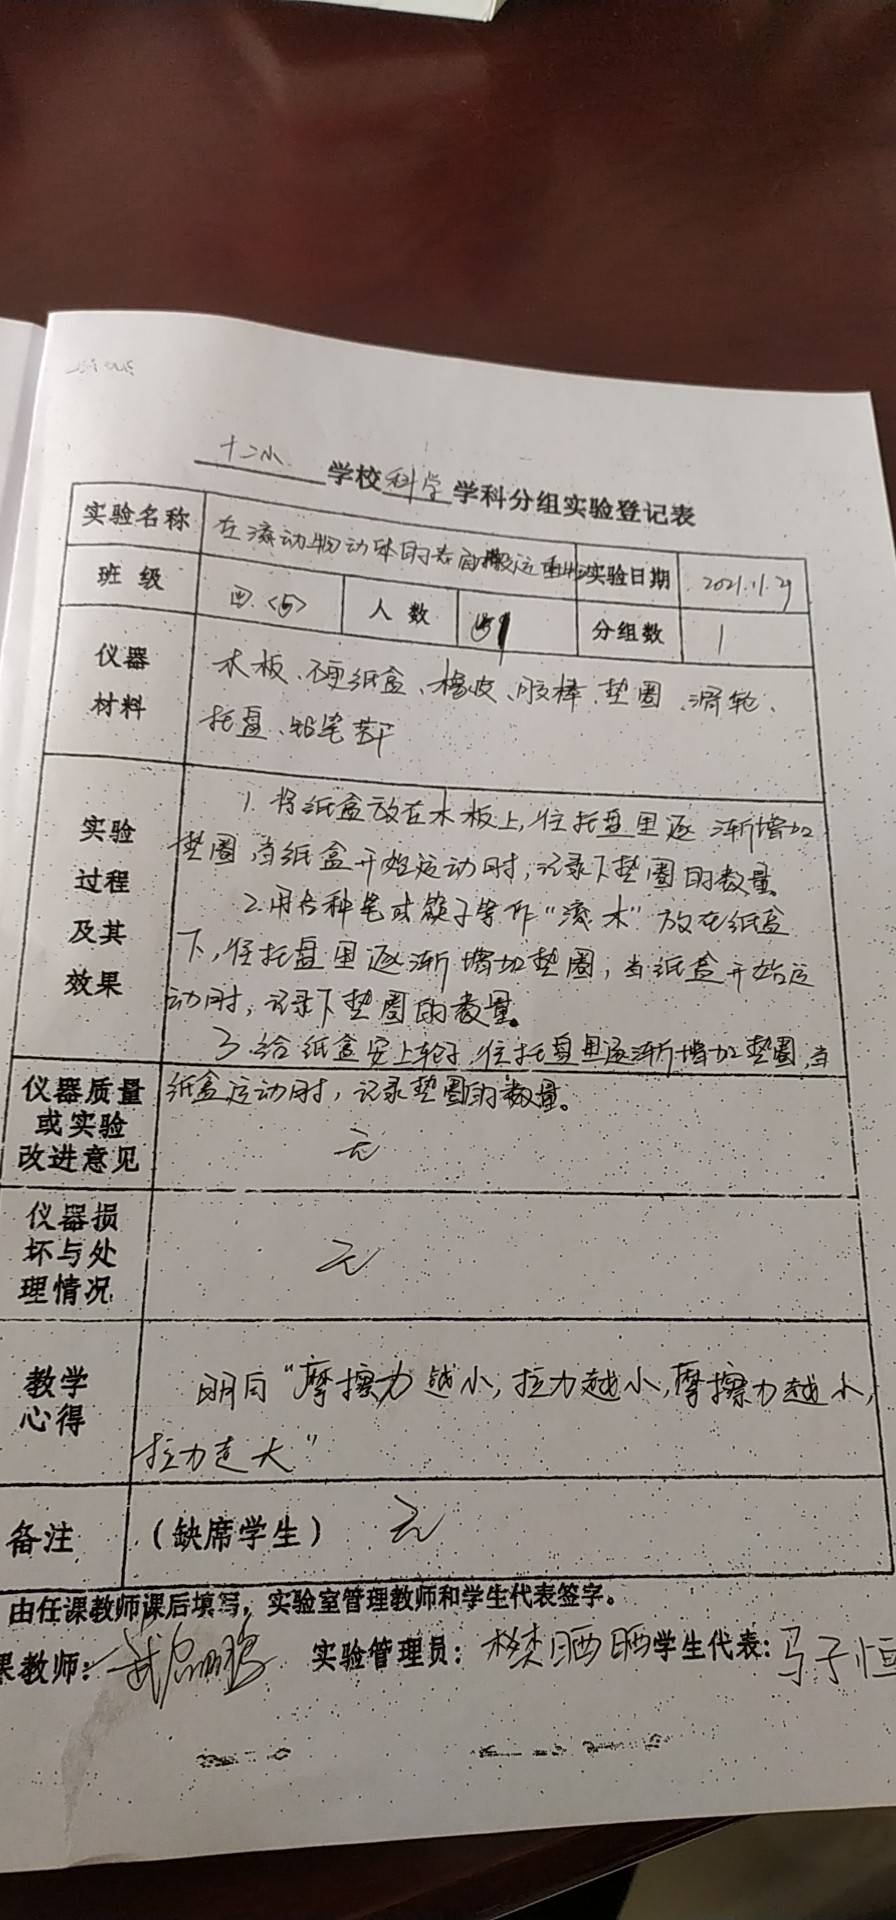 十二小 学校科学学科分组实验登记表
实验名称 在滚动物动体的表面搬运重物 实验日期 2021.11.29
班级 四.<5> 人数 51 分组数 1
仪器 木板、硬纸盒、橡皮、胶棒、垫圈、滑轮、
材料 托盘、铅笔若干
1.将纸盒放在木板上,往托盘里逐渐增加
实验 垫圈,当纸盒开始运动时,记录下垫圈的数量
过程 2.用各种笔或筷子等作“滚木”放在纸盒
及其 下,往托盘里逐渐增加垫圈,当纸盒开始运
效果 动时,记录下垫圈的数量。
3.给纸盒安上轮子,往托盘里逐渐增加垫圈,当
仪器质量 纸盒运动时,记录垫圈的数量。
或实验
改进意见 无
仪器损
坏与处 无
理情况
教学 明白“摩擦力越小,拉力越小,摩擦力越小,
心得
拉力越大”
备注 (缺席学生) 无
由任课教师课后填写,实验室管理教师和学生代表签字。
课教师: 实验管理员: 樊晒晒 学生代表: 马子恒